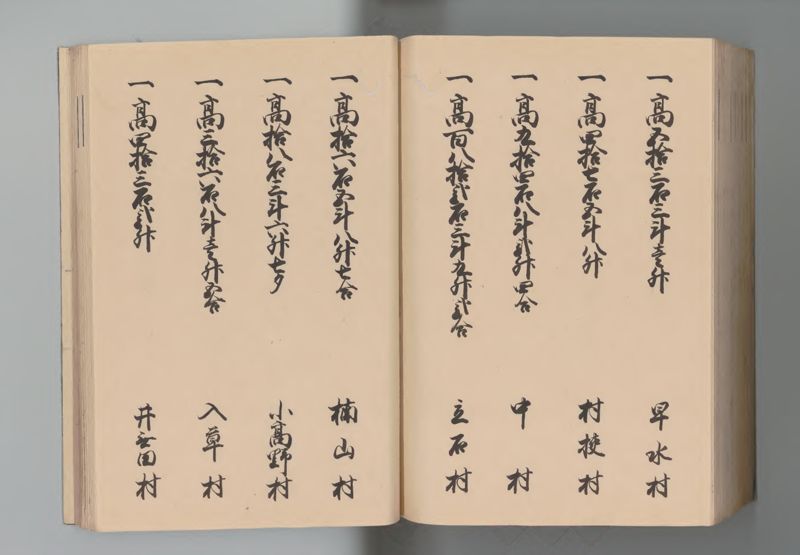 一高五拾三石三斗壱升 早水村
一高四拾七石五斗八升 村桜村
一高九拾四石八斗弐升四合 中村
一高百八拾弐石三斗九升弐合 立石村
一高拾六石五斗八升七合 楠山村
一高拾八石三斗六升七夕 小高野村
一高三拾六石八斗壱升五合 入草村
一高四拾三石弐升 井無田村